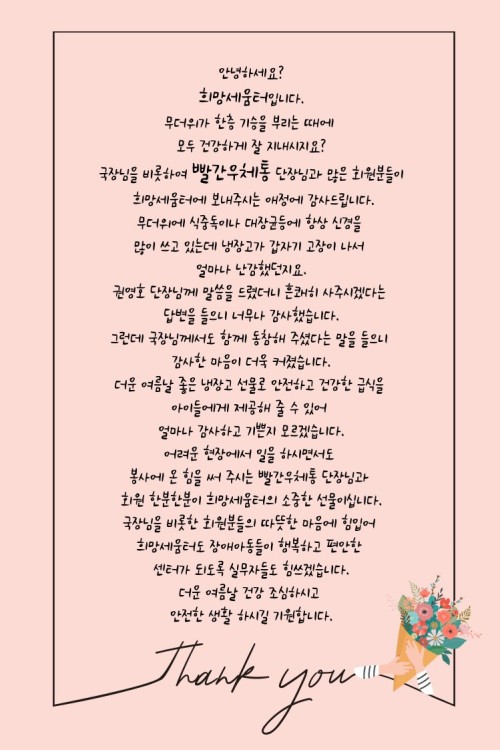 안녕하세요?
희망세움터입니다.
무더위가 한층 기승을 부리는 때에
모두 건강하게 잘 지내시지요?
국장님을 비롯하여 빨간우체통 단장님과 많은 회원분들이
희망세움터에 보내주시는 애정에 감사드립니다.
무더위에 식중독이나 대장균등에 항상 신경을
많이 쓰고 있는데 냉장고가 갑자기 고장이 나서
얼마나 난감했던지요.
권영호 단장님께 말씀을 드렸더니 흔쾌히 사주시겠다는
답변을 들으니 너무나 감사했습니다.
그런데 국장님께서도 함께 동참해 주셨다는 말을 들으니
감사한 마음이 더욱 커졌습니다.
더운 여름날 좋은 냉장고 선물로 안전하고 건강한 급식을
아이들에게 제공해 줄 수 있어
얼마나 감사하고 기쁜지 모르겠습니다.
어려운 현장에서 일을 하시면서도
봉사에 온 힘을 써 주시는 빨간우체통 단장님과
회원 한분한분이 희망세움터의 소중한 선물이십니다.
국장님을 비롯한 회원분들의 따뜻한 마음에 힘입어
희망세움터도 장애아동들이 행복하고 편안한
센터가 되도록 실무자들도 힘쓰겠습니다.
더운 여름날 건강 조심하시고
안전한 생활 하시길 기원합니다.
Thank you